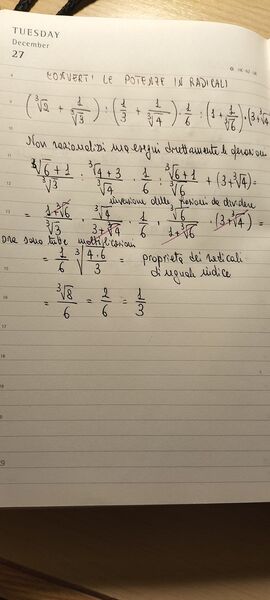 TUESDAY
December
27
CONVERTI LE POTENZE IN RADICALI
(∛2 + 1/∛3) : (1/3 + 1/∛4) · 1/6 : (1 + 1/∛6) · (3+∛4)
Non razionalizzi ma esegui direttamente le operazioni
(∛6 + 1)/∛3 : (∛4 + 3)/∛4 · 1/6 : (∛6 + 1)/∛6 + (3+∛4) =
inversione delle frazioni da dividere
= (1+∛6)/∛3 · ∛4/(3+∛4) · 1/6 · ∛6/(1+∛6) · (3+∛4) =
ora sono tutte moltiplicazioni
= 1/6 ∛(4·6/3) = proprietà dei radicali
di uguale indice
= ∛8/6 = 2/6 = 1/3